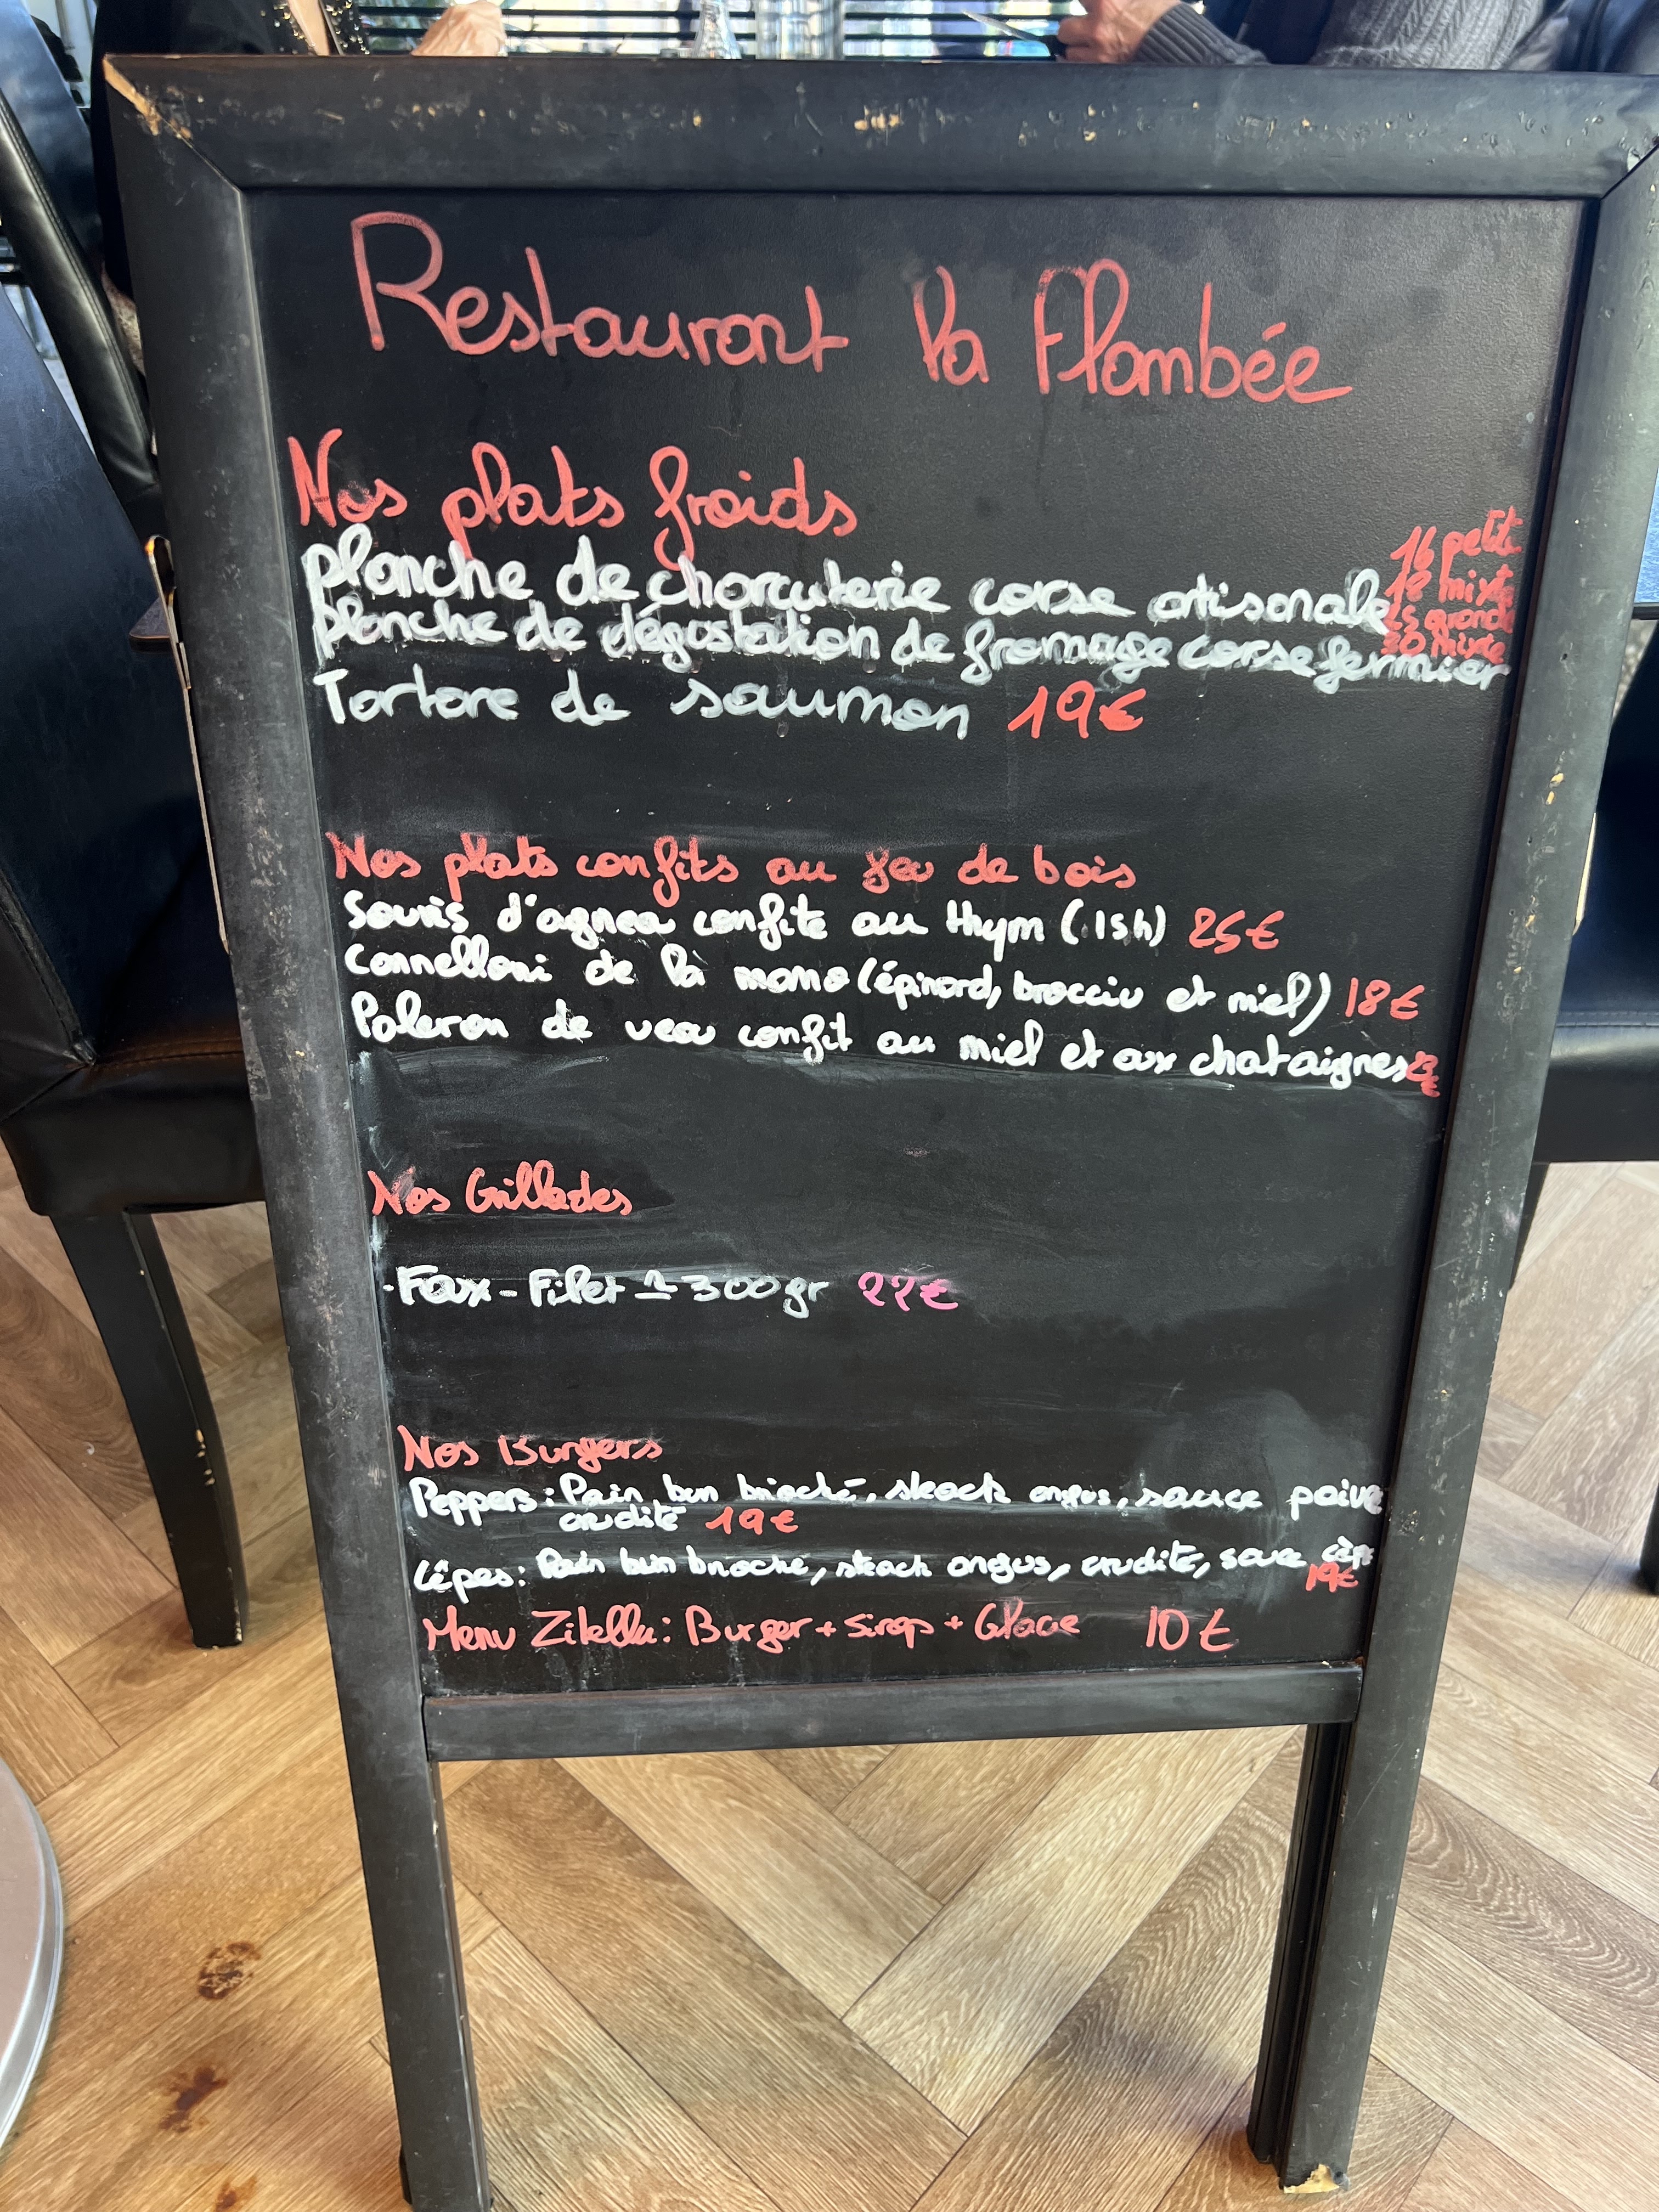 Restaurant la Flambée
Nos plats froids
16 petite
18 mixte
25 grande
30 mixte
Planche de charcuterie corse artisanale
Planche de dégustation de fromage corse fermier
Tartare de saumon 19€
Nos plats confits au feu de bois
Souris d'agneau confite au thym (15h) 25€
Cannelloni de la mama (épinard, brocciu et miel) 18€
Paleron de veau confit au miel et aux chataignes
Nos Grillades
-Faux-Filet ≃ 300gr 22€
Nos Burgers
Peppers: Pain bun brioché, steack angus, sauce poivre
crudité 19€
Cêpes: Pain bun brioché, steack angus, crudité, sauce cèpe
19€
Menu Zitellu: Burger + Sirop + Glace 10€